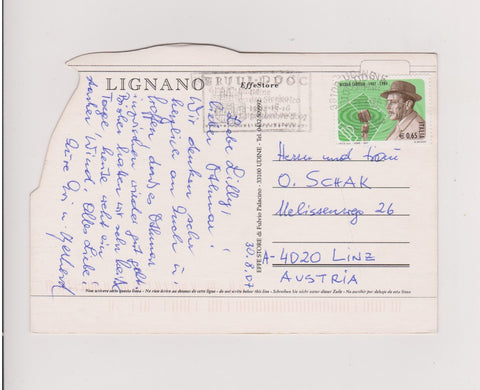 LIGNANO
EffeStore
NICOLO CAROSIO 1907 - 1984
ITALIA
€ 0,65
Liebe Lilly!
Lieber Othmar!
Wir denken sehr
herzlich an Euch u.
hoffen, dass es Othmar
inzwischen wieder gut geht.
Bisher hatten wir sehr heiße
Tage, heute weht ein
starker Wind. Alles Liebe!
Eure
30.8.07
EFFE STORE di Fulvio Palacino - 33100 UDINE - Tel.
Herrn und Frau
O. SCHAK
Melissenweg 26
A-4020 LINZ
AUSTRIA
Non scrivere sotto questa linea - Ne rien écrire au dessous de cette ligne - do not write below this line - Schreiben Sie nicht unter dieser Zeile - No escribir por debajo de esta línea